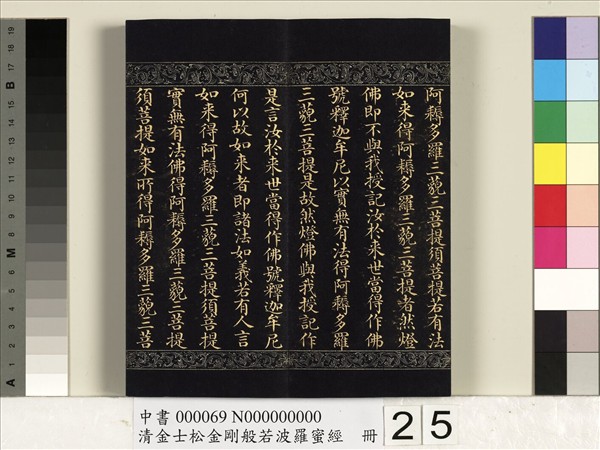 阿耨多羅三藐三菩提須菩提若有法
如來得阿耨多羅三藐三菩提者然燈
佛即不與我授記汝於來世當得作佛
號釋迦牟尼以實無有法得阿耨多羅
三藐三菩提是故然燈佛與我授記作
是言汝於來世當得作佛號釋迦牟尼
何以故如來者即諸法如義若有人言
如來得阿耨多羅三藐三菩提須菩提
實無有法佛得阿耨多羅三藐三菩提
須菩提如來所得阿耨多羅三藐三菩
中書 000069 N000000000
清金士松金剛般若波羅蜜經 冊
25
A 1 2 3 4 5 6 M 8 9 10 11 12 13 14 15 B 17 18 19